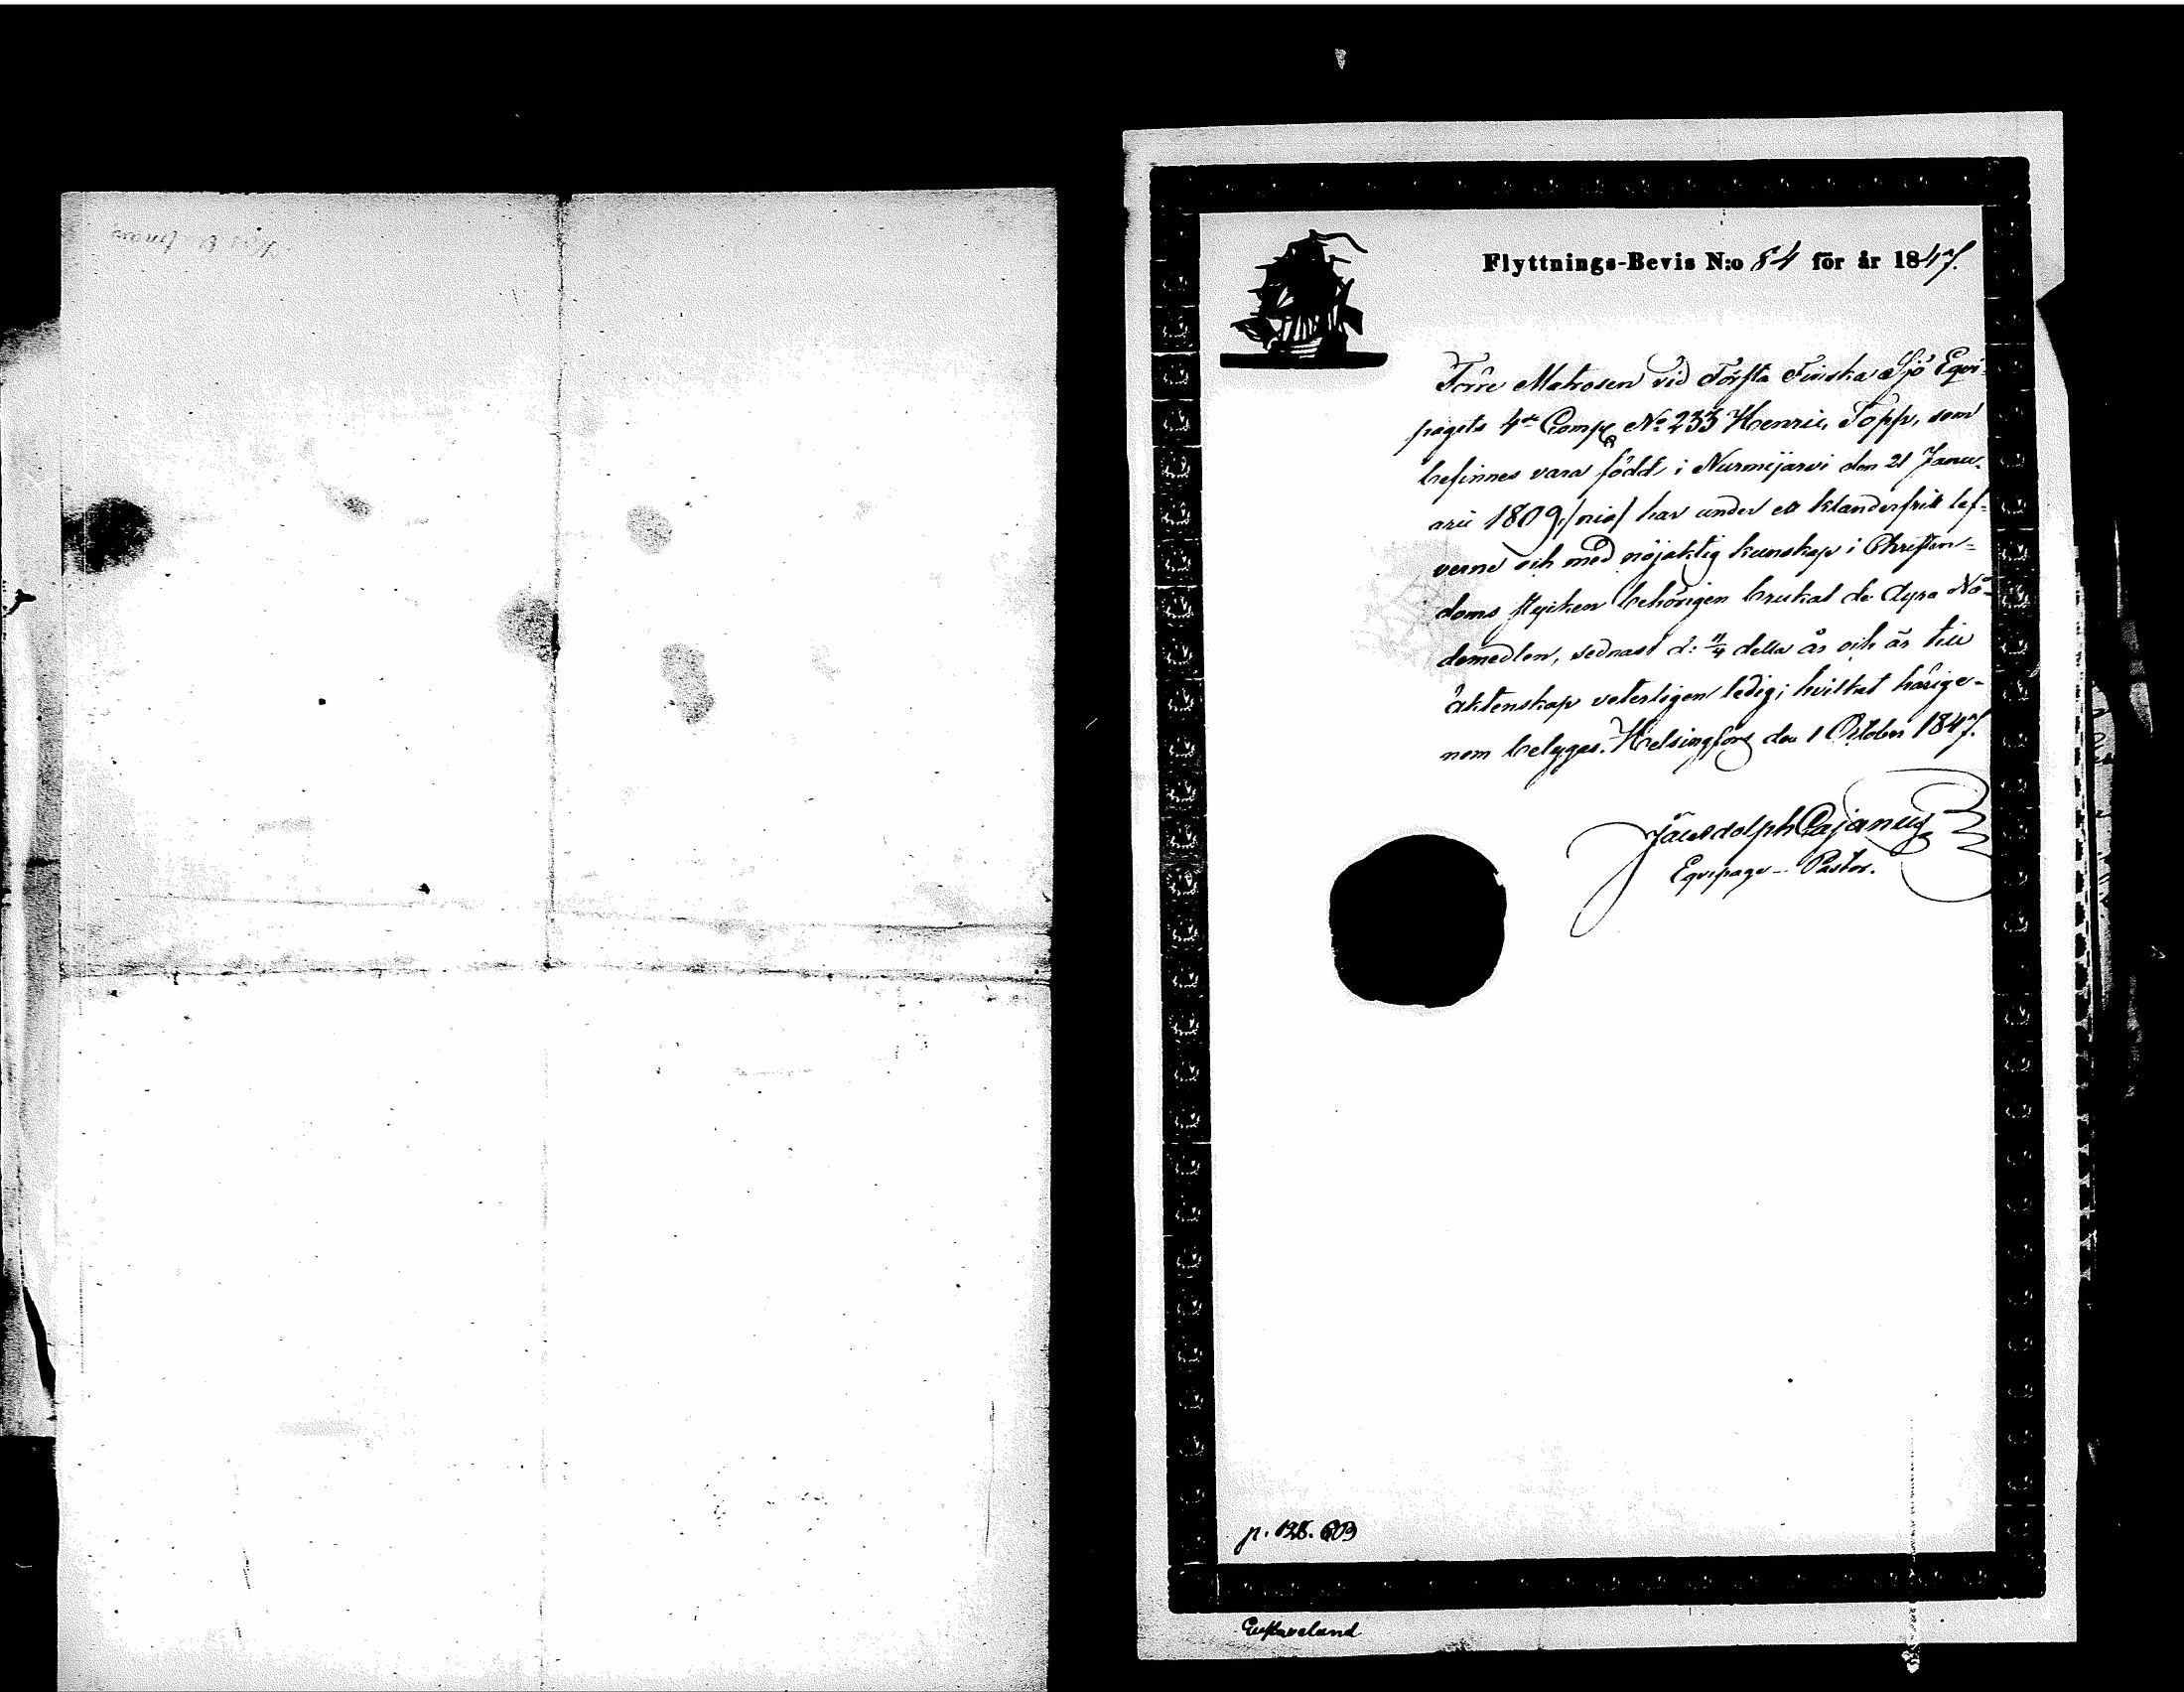 Flyttnings-Bevis N:o 84 för år 1847.
Förre Matrosen vid Första Finska Sjö Equi-
pagets 4de Comp. No 233 Henric Topp, som
befinnes vara född i Nurmijärvi den 21 Janu-
arii 1809 /nio/ har under ett klanderfritt lef-
verne och med nöjaktig kunskap i Christen-
doms stycken behörigen brukat de dyra Nå-
demedlen, sednast d: 11/4 detta år och är till
äktenskap veterligen ledig; hvilket härige-
nom betygas. Helsingfors den 1 October 1847.
Cajanus
Equipage-Pastor.
p. 128.
Gustaveland